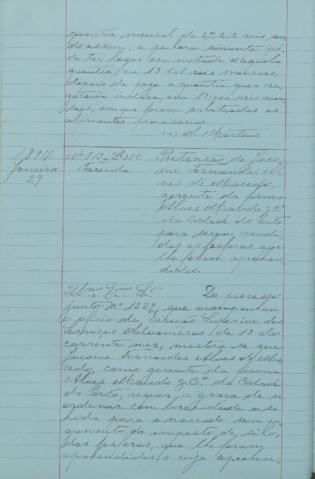 quantia mensal de 27:212 reis sen
do assim, a penhora sómente pó
de ter logar em metade d'aquela
quantia, ou 13:606 reis mensaes,
depois de paga a quantia que a no
mensaes, em que foram arbitrados os
alimentos provisorios.
(a) A. Martins
1894
Janeiro
29
Nº 813 - Lº 38C
Fazenda
Pretensão de Jaco
me Fernandes Al
ves de Macedo,
gerente da firma
Alves Macedo & Cª
da Cidade do Porto
para serem vendi
dos os fosforos que
lhe foram aprehen
didos.
Illmo Exmo Sr. Do processo
junto Nº 1229, que acompanhou
o oficio da Direcção Superior dos
Serviços Aduaneiros, de 13 do
corrente mez, mostra se que
Jacome Fernandes Alves de Ma
cedo, como gerente da firma
Alves Macedo & Cª da Cidade
do Porto, requer a graça de se
ordenar com brevidade a sa
hida para o mercado sem pa
gamento do imposto de sello,
dos fosforos, que lhe foram
aprehendidos e cuja aprehen